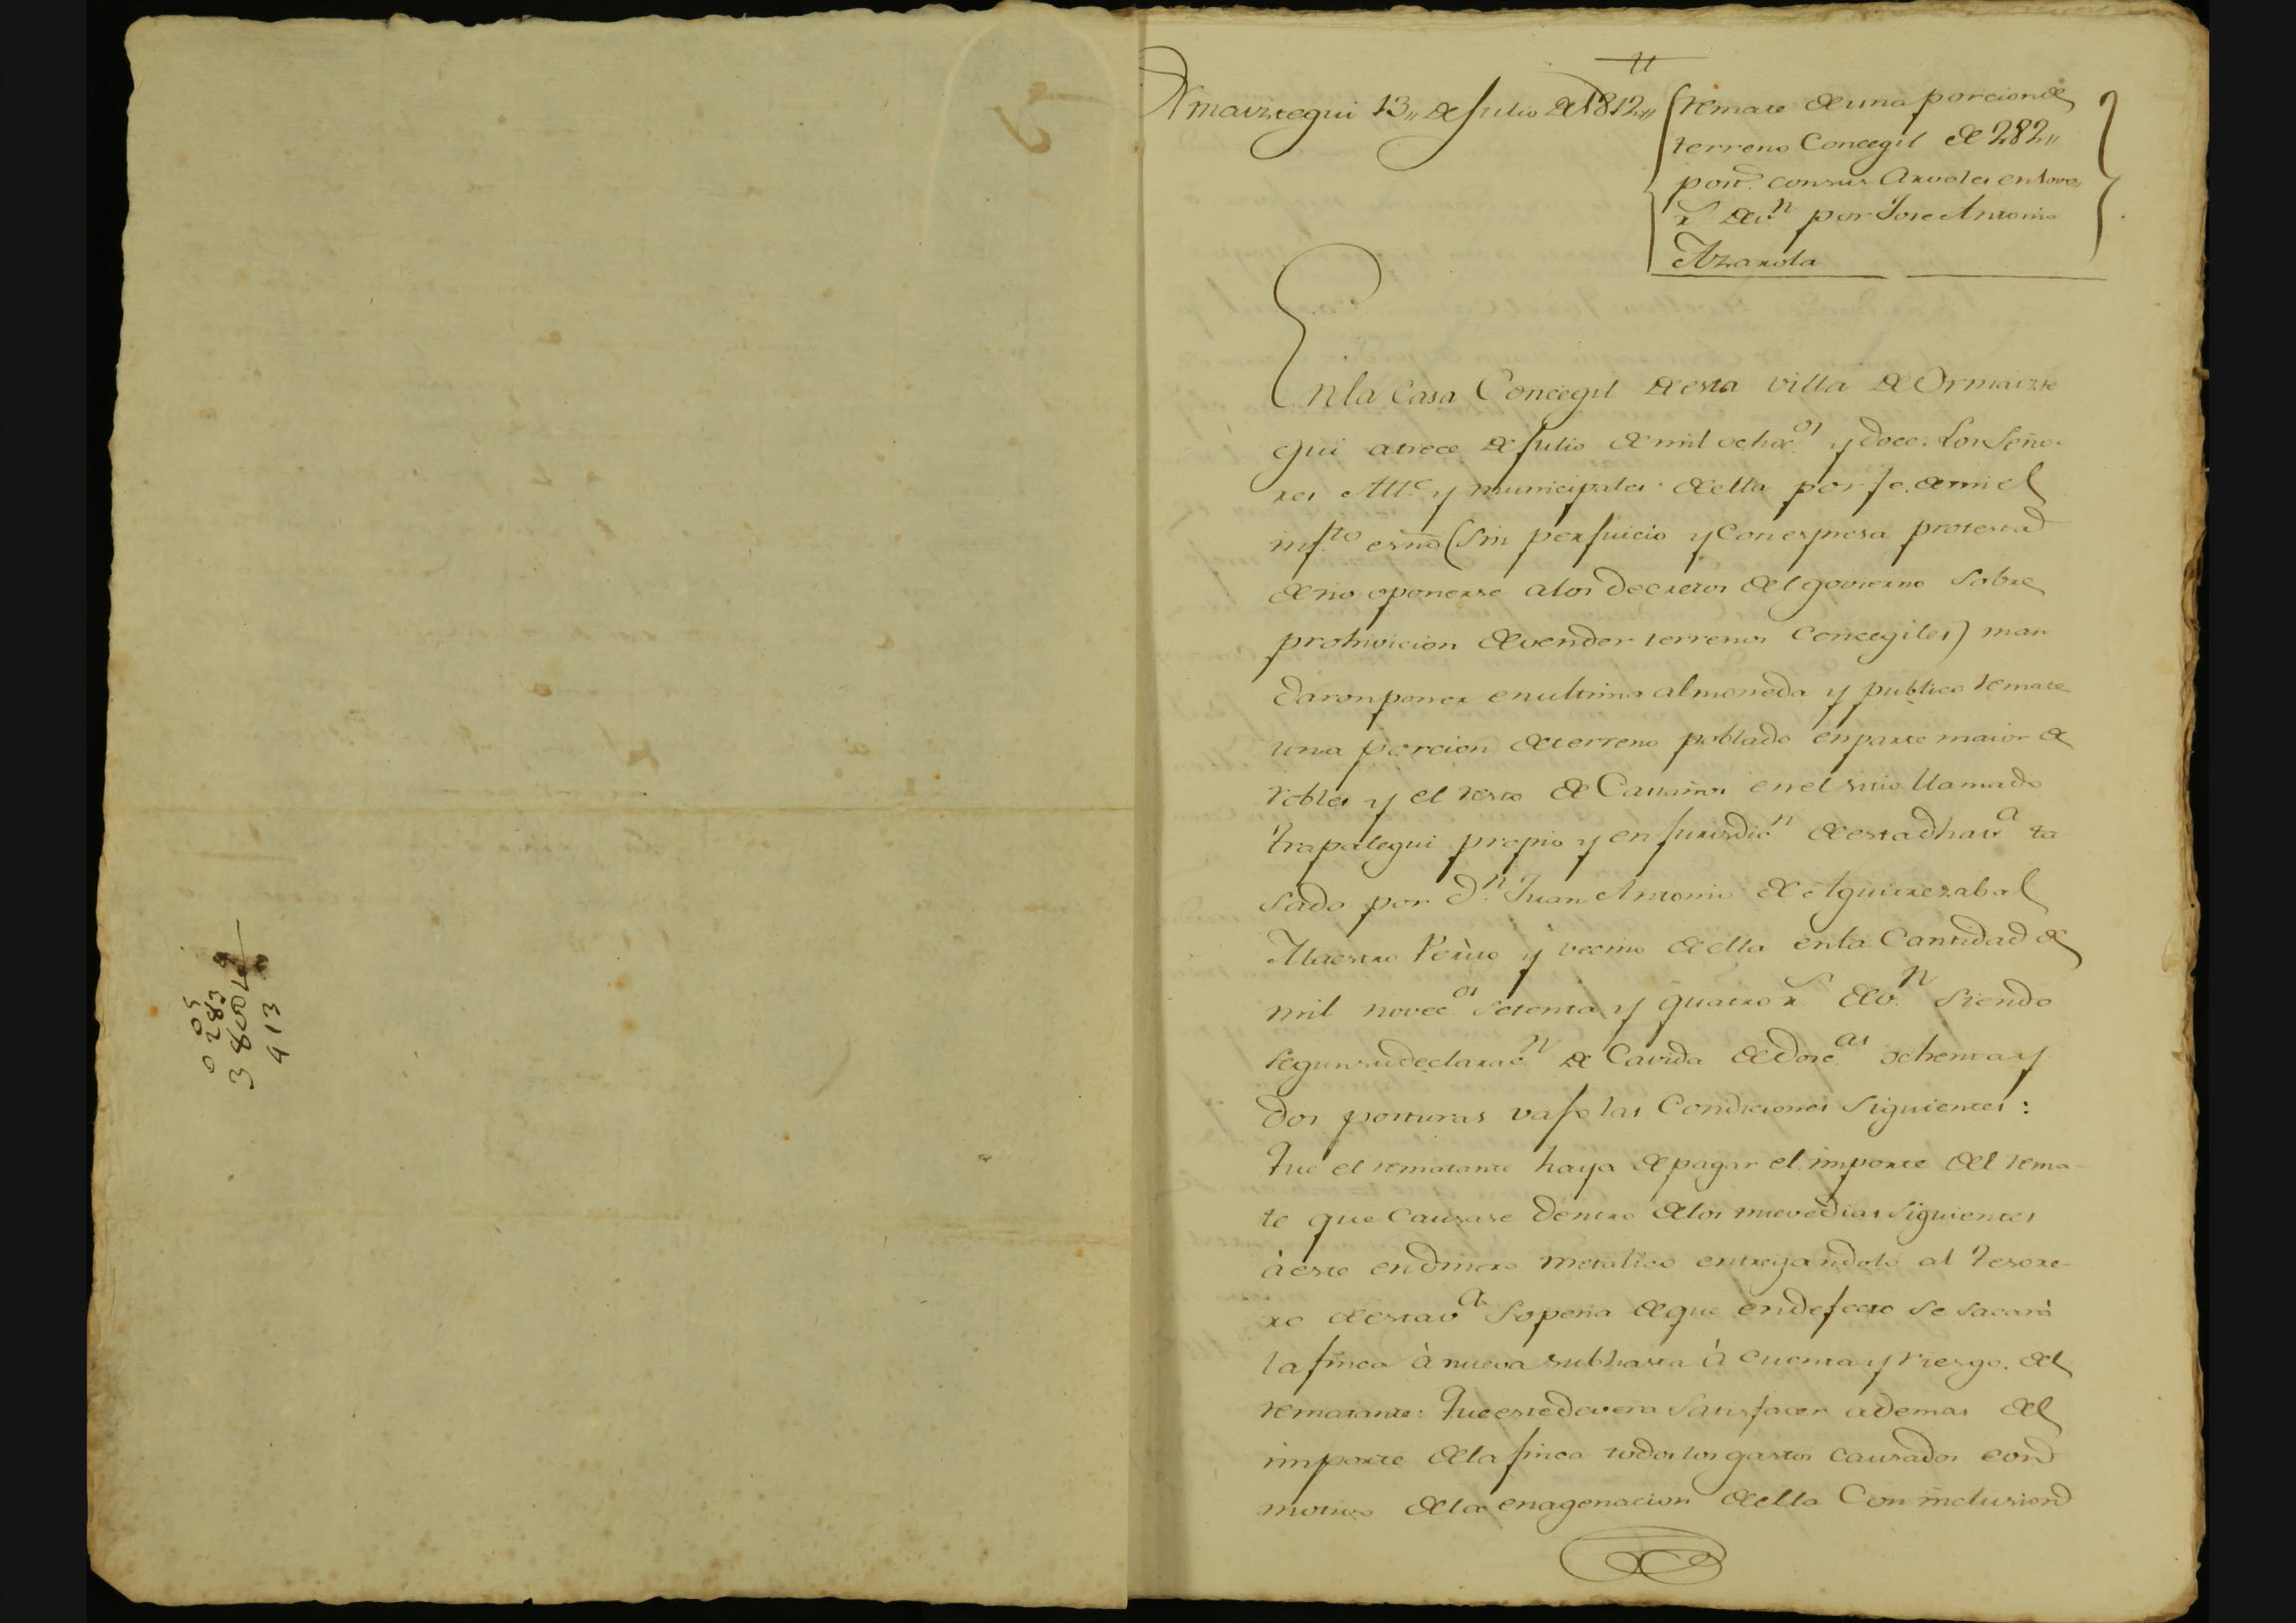 0 205
0 283
3 800
413
Ormaiztegui 13,, de Julio de 1812,,
Remate de una porcion de
terreno Concegil de 282,,
post.s con sus Arvoles en
r.s de v.n por Jose Antonio
Azarola
En la Casa Concegil de esta villa de Ormaizte
gui a trece de Julio de mil ochoc.os y doce. Los Seño-
res Alc.e y municipales de ella por fe. de mi el
inf.to esno (sin perjuicio y con espresa protesta
de no oponerse a los decretos del govierno sobre
prohivicion de vender terrenos Concegiles) man
daron poner en ultima almoneda y publico remate
una porcion de terreno poblado en parte maior de
robles y el resto de Castaños en el sitio llamado
trapalegui propio y en jurisdic.n de esta dha v.a ta
sado por D.n Juan Antonio de Aguirrezabal
Maestro Perito y vecino de ella en la Cantidad de
mil novec.os setenta y quatro r.s de v.n siendo
segun su declarac.n de Cavida de dosc.as ochenta y
dos posturas vajo las Condiciones siguientes:
Que el rematante haya de pagar el importe del rema-
te que causase dentro de los nueve dias siguientes
à este en dinero metalico entregandolo al tesore-
ro de esta v.a so pena de que en defecto se sacarà
la finca à nueva subhasta à cuenta y riesgo. del
rematante: Que este devera satisfacer ademas del
importe de la finca todos los gastos causados con
motivo de la enagenacion de ella Con inclusion